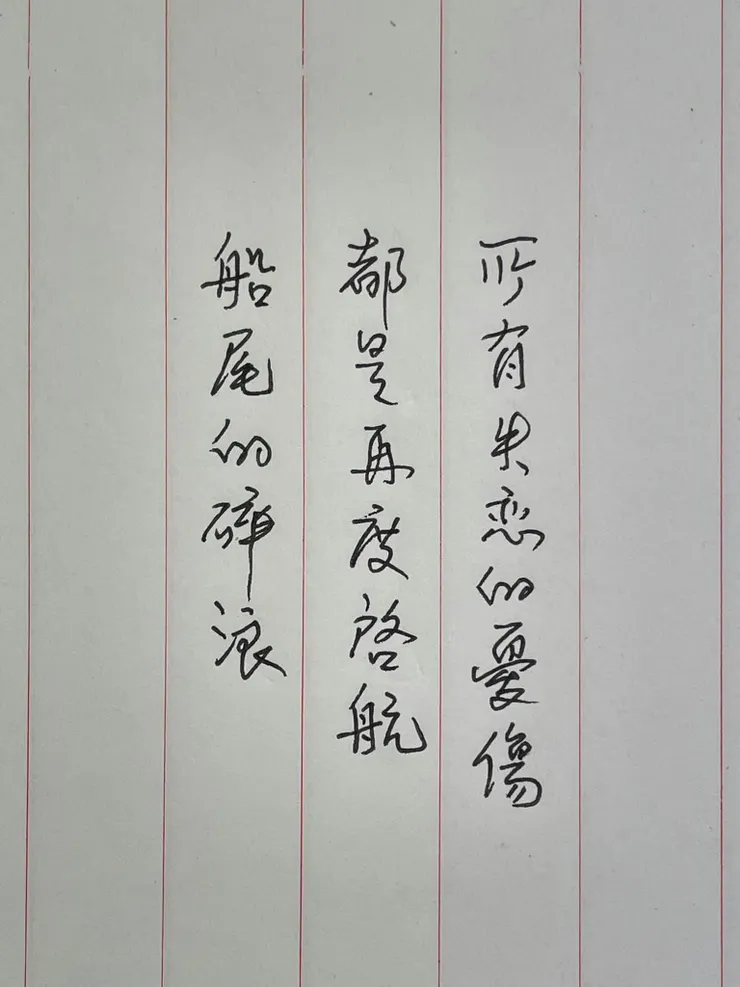 所有失恋的憂傷
都是再度啓航
船尾的碎浪